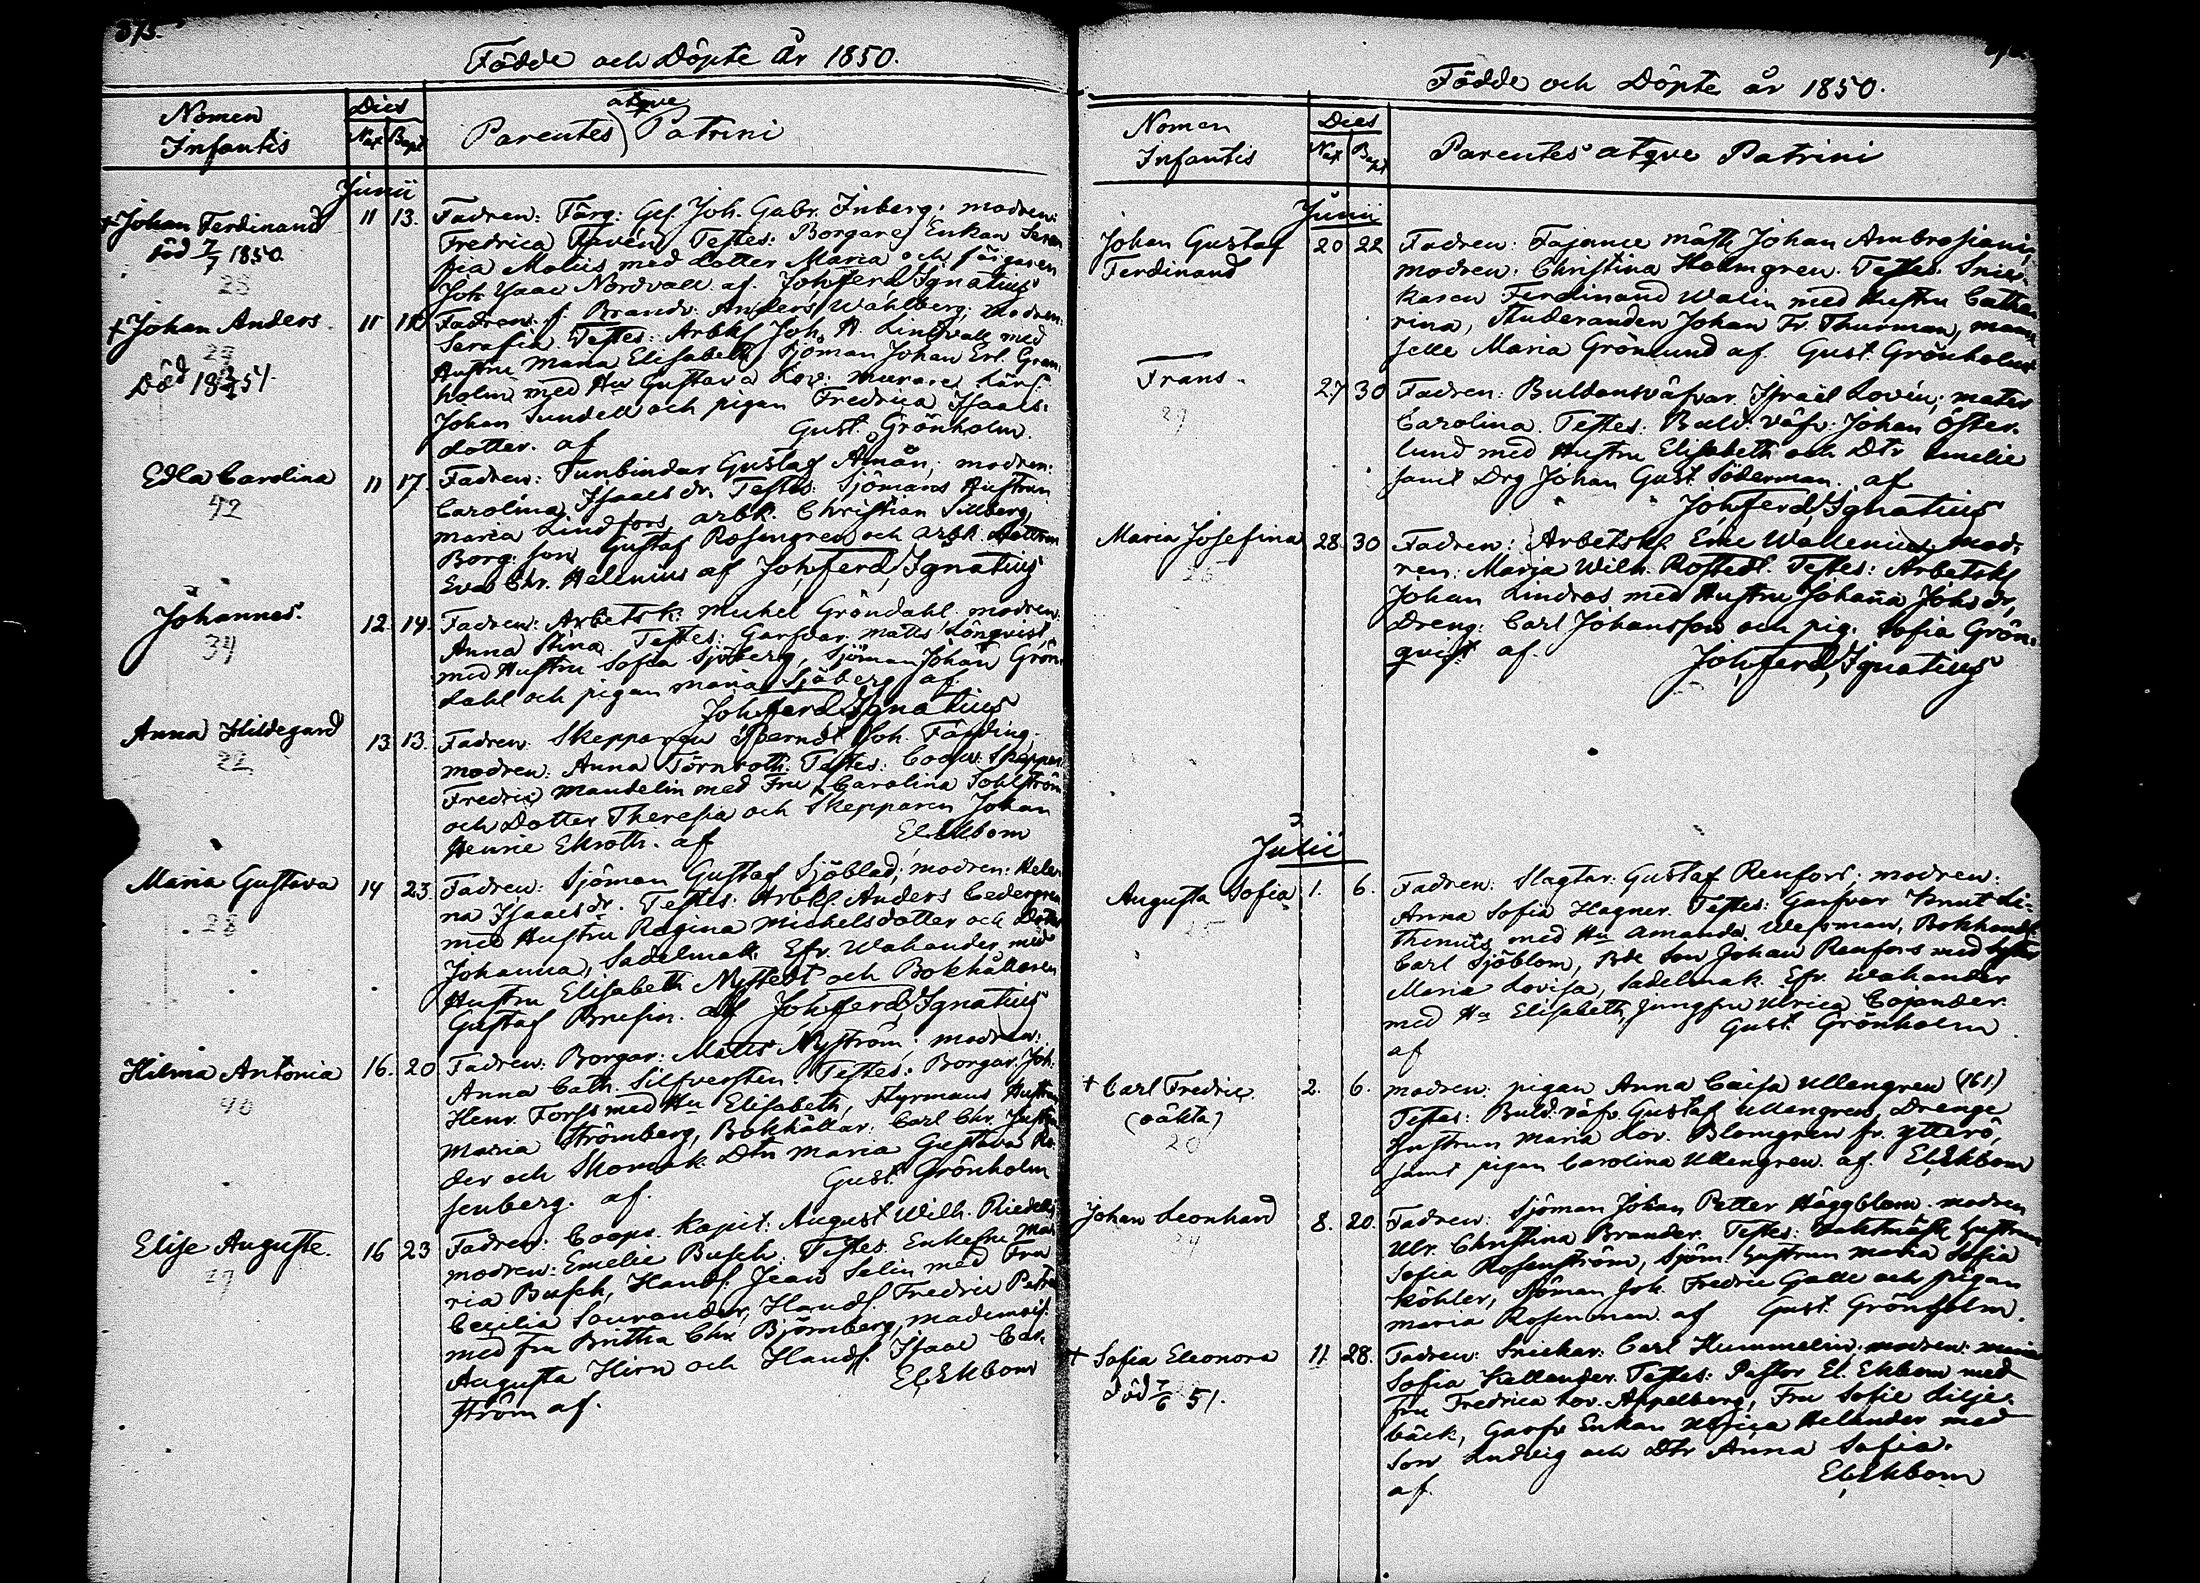 375.
Födde och Döpte År 1850.
Nomen Infantis
Dies
Nat Bapt
Parentes atque Patrini
Junii
+ Johan Ferdinand 11 13. Fadren: Färg: Ges. Joh. Gabr. Inberg; modren:
död 7/7 1850. Fredrica Favén. Testes: Borgare Enkan Sera
23 fia Moliis med dotter Maria och färgaren
Joh. Isaac Nordvall af. Joh. Ferd. Ignatius
+ Johan Anders. 11 Fadren: f. Brandv. Anders Wahlberg; modren:
Serafia. Testes: Arbkl Joh. A. Lindvall med
Död 51. Hustru Maria Elisabeth, Sjöman Johan Erl. Gran
holm med Hu Gustava Lov: murare Lärl:
Johan Sundell och pigan Fredrica Isaacs
dotter. af Gust. Grönholm.
Edla Carolina 11 17. Fadren: Tunbindar Gustaf Aman; modren:
42 Carolina Isaacs dr. Testes: Sjömans Hustrun
Maria Lindfors, arbk. Christian Sillberg,
Borg: son Gustaf Rosengren och arbk. dottren
Eva Chr. Helenius af Joh. Ferd. Ignatius
Johannes. 12. 14. Fadren: Arbetsk: Michel Gröndahl; modren:
34 Anna Stina. Testes: Garfvar Matts Lönqvist,
med Hustru Sofia Sjöberg, Sjöman Johan Grön
dahl och pigan Maria Sjöberg af
Joh. Ferd. Ignatius
Anna Hildegard 13 13. Fadren: Skepparen Berndt Joh. Färding;
22 modren: Anna Törnroth. Testes: Coopv: Skeppar
Fredric Mandelin med Fru Carolina Sohlström
och Dotter Theresia och Skepparen Johan
Henric Ekroth. af El. Ekbom
Maria Gustava 14 23. Fadren: Sjöman Gustaf Sjöblad; modren: Hele
28 na Isaacs dr. Testes: Arbkl Anders Cedergren
med Hustru Regina Michelsdotter och Dotter
Johanna, Sadelmak. Efr. Wahander med
Hustru Elisabeth Nystedt och Bokhållaren
Gustaf Brusin. af Joh. Ferd. Ignatius
Hilma Antonia 16. 20 Fadren: Borgar: Matts Nyström; modren:
40 Anna Cath. Silfversten. Testes: Borgar. Joh.
Henr. Forss med Hu Elisabeth, Styrmans Hustru
Maria Strömberg, Bokhållar: Carl Chr. Justan
der och Skomak. Dtr Maria Gustava Ro
senberg. af. Gust. Grönholm
Elise Auguste. 16 23 Fadren: Coopv. Kapit: August Wilh. Riedell;
modren: Emelie Busch. Testes: Enkefru Ma
ria Busch, Handl. Jean Selin med Fru
Cecilia Sourander, Handl. Fredric Petre
med fru Britha Chr. Björnberg, mademois.
Augusta Hirn och Handl. Isaac Car
ström af. El. Ekbom
Födde och Döpte år 1850.
Nomen Infantis
Dies
Nat Bapt
Parentes atque Patrini
Junii
Johan Gustaf 20 22 Fadren: Fajance mäst. Johan Ambrosiani,
Ferdinand modren: Christina Holmgren. Testes: Snic
karen Ferdinand Walin med Hustru Catha
rina, Studeranden Johan Fr. Thurman, mam
selle Maria Grönlund af. Gust. Grönholm
Frans. 27 30 Fadren: Buldansväfvar. Israël Lovén; mater
Carolina. Testes: Buld. väfv: Johan Öster
lund med Hustru Elisabeth och Dtr Emelie
samt Drg Johan Gust. Söderman. af
Joh. Ferd. Ignatius
Maria Josefina 28. 30 Fadren: Arbetskl. Eric Wallenius, mod-
ren: Marja Wilh. Rostedt. Testes: Arbetskl
Johan Lindros med Hustru Johanna Johs dr,
Dreng: Carl Johansson och pig: Sofia Grön
qvist af. Joh. Ferd. Ignatius
Julii
Augusta Sofia 1. 6. Fadren: Slagtar: Gustaf Renfors; modren:
Anna Sofia Hagner. Testes: Garfvar Knut Li
thenius med Hu Amanda Wessman, Bokhandl.
Carl Sjöblom, Bde Son Johan Renfors med syster
Maria Lovisa, Sadelmak. Efr. Wahander
med Hu Elisabeth, jungfru Ulrica Cajander.
af Gust. Grönholm
+ Carl Fredric. 2. 6. modren: pigan Anna Caisa Ullengren (161)
(oäkta) Testes: Buld. väfv. Gustaf Ullengren, Drenge
Hustrun Maria Lov. Blomgren fr. Ytterö,
samt pigan Carolina Ullengren. af. El. Ekbom
Johan Leonhard 8. 20. Fadren: Sjöman Johan Petter Häggblom. modren
Ulr. Christina Brander. Testes: Vaktmäst. Hustrun
Sofia Rosenström, Sjöm. Hustrun Maria Sofia
Köhler, Sjöman Joh. Fredric Galle och pigan
Maria Rosenman. af Gust. Grönholm.
+ Sofia Eleonora 11. 28. Fadren: Snickar: Carl Hummelin; modren:
död 7/6 51. Sofia Kellander. Testes: Pastor El. Ekbom med
fru Fredrica Lov. Appelberg, Fru Sofie Lilje
bäck, Garfv Enkan Ulrica Helander med
Son Ludvig och Dtr Anna Sofia.
af El. Ekbom